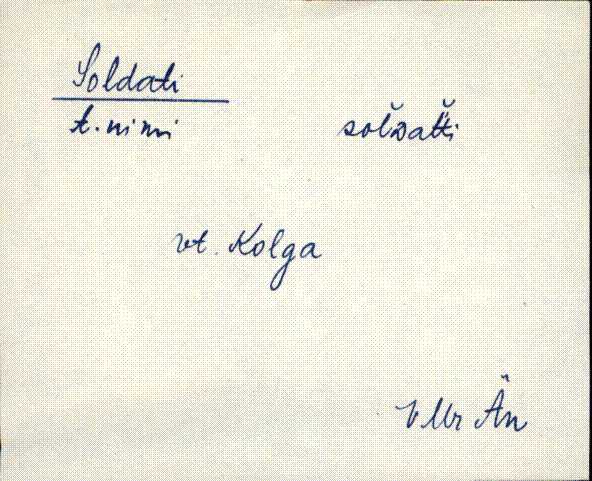 Soldati
t. nimi solᴅat̆ti
vt. Kolga
V Mr Ân